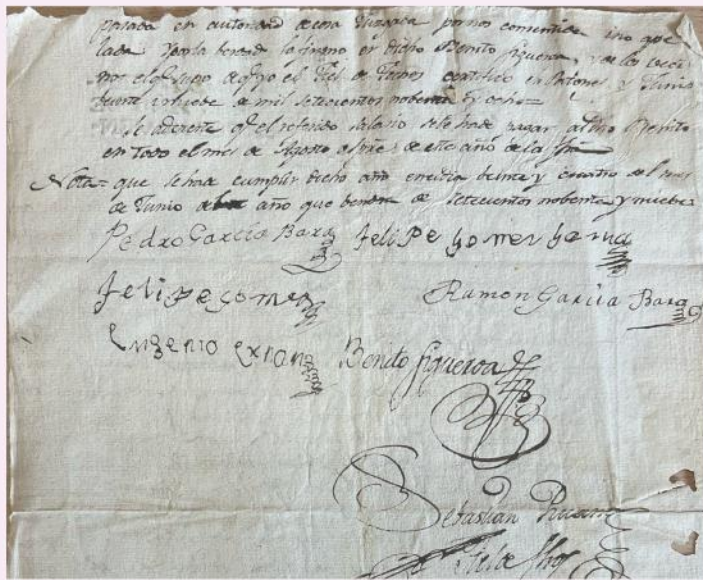 pasada en autoridad de cosa Juzgada por nos consentida no que
lada y por la verdad lo firmo el dicho Benito figueroa, y de los veci
nos el q.e supo de q.e yo el Fiel de Fechos certifico en Patones y Junio
veinte y nuebe de mil setecientos nobenta y ocho=
Se adbierte q.e el referido salario se le ha de pagar al dho Benito
en todo el mes de Agosto de este año de la fha
Nota= que se ha de cumplir dicho año en el dia beinte y cuatro del mes
de Junio del año que bendra de setecientos nobenta y nuebe=
Pedro Garcia Bara Felipe Gomez
Felipe Gomez Ramon Garcia Bara
Eugenio Benito figueroa
Sebastian
Fiel de fhos